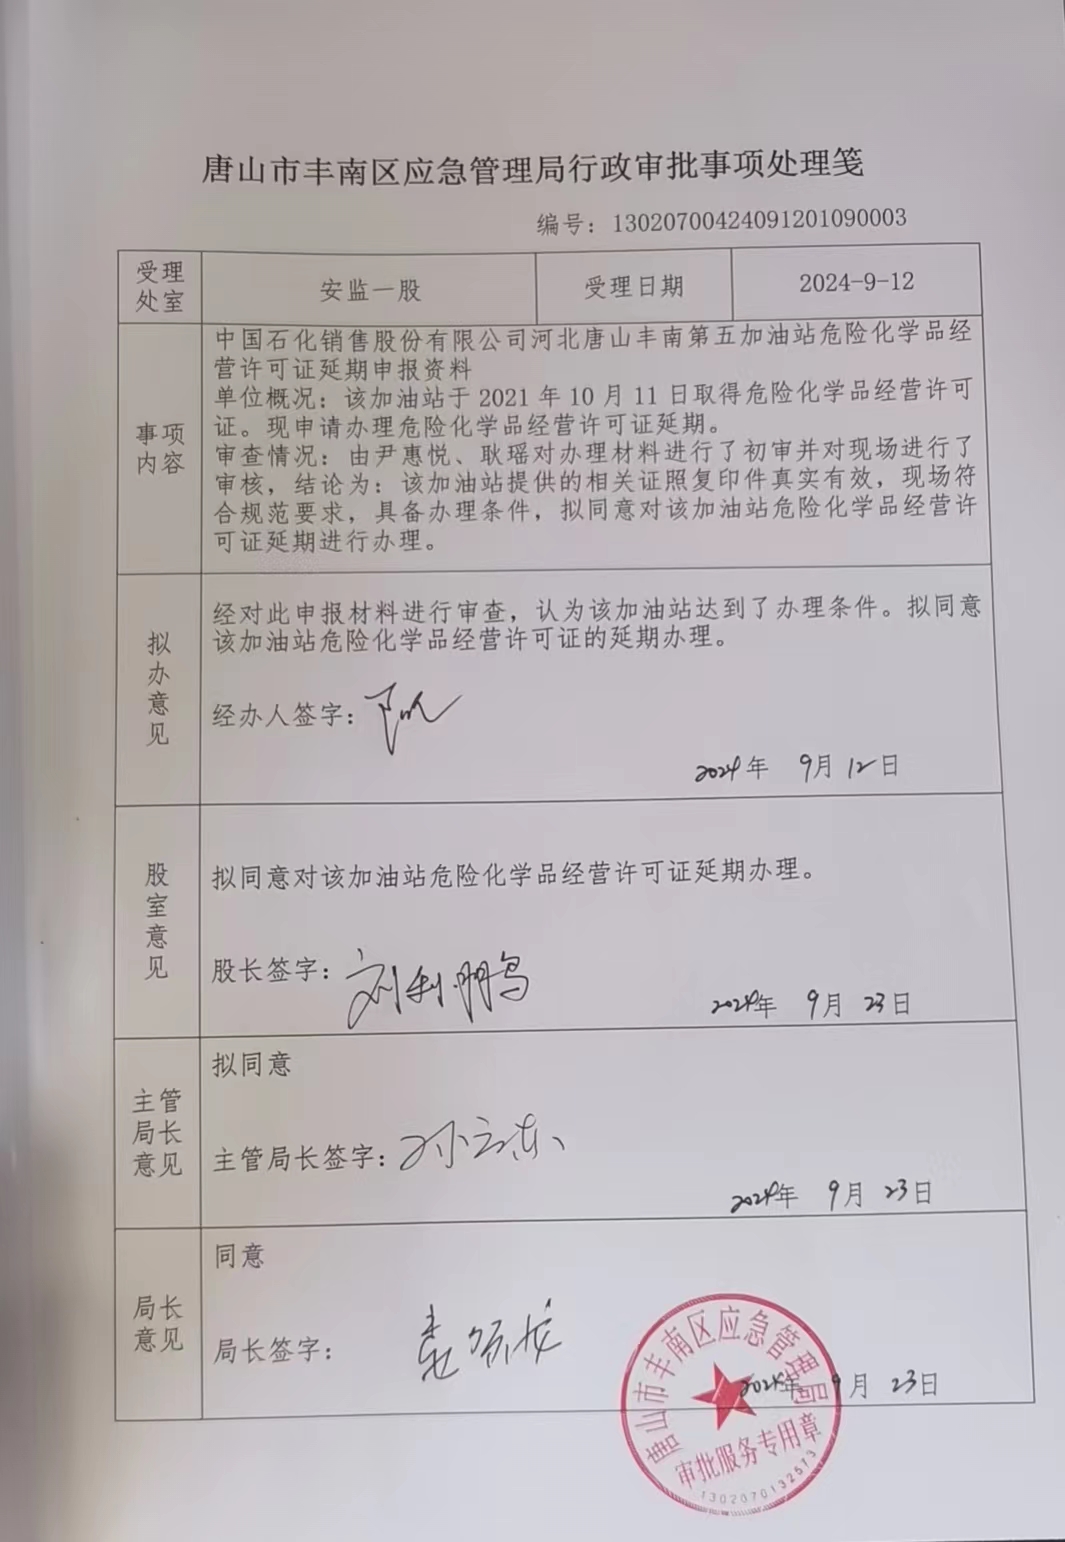 唐山市丰南区应急管理局行政审批事项处理笺
编号：13020700424091201090003
受理处室
安监一股
受理日期
2024-9-12
事项内容
中国石化销售股份有限公司河北唐山丰南第五加油站危险化学品经
营许可证延期申报资料
单位概况：该加油站于 2021 年 10 月 11 日取得危险化学品经营许可
证。现申请办理危险化学品经营许可证延期。
审查情况：由尹惠悦、耿瑶对办理材料进行了初审并对现场进行了
审核，结论为：该加油站提供的相关证照复印件真实有效，现场符
合规范要求，具备办理条件，拟同意对该加油站危险化学品经营许
可证延期进行办理。
拟办意见
经对此申报材料进行审查，认为该加油站达到了办理条件。拟同意
该加油站危险化学品经营许可证的延期办理。
经办人签字：
2024年 9月 12日
股室意见
拟同意对该加油站危险化学品经营许可证延期办理。
股长签字：刘利鹏
2024年 9月 23日
主管局长意见
拟同意
主管局长签字：孙立东
2024年 9月 23日
局长意见
同意
局长签字：
2024年 9月 23日
唐山市丰南区应急管理局
审批服务专用章
1302070132573